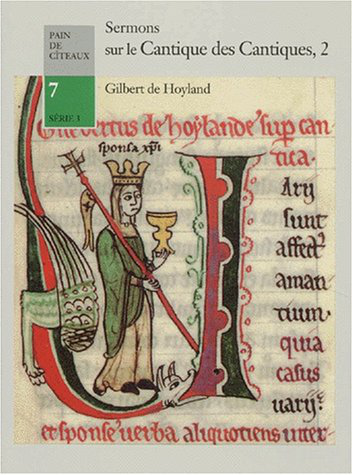 PAIN
DE
CÎTEAUX
7
SÉRIE 3
Sermons
sur le Cantique des Cantiques, 2
Gilbert de Hoyland
de hoylande sup can
tica.
sponsa xp̄i
Arỳ
sunt
affect⁹
aman
tium.
quia
casus
uarij:
et sponse uerba aliquotiens inter